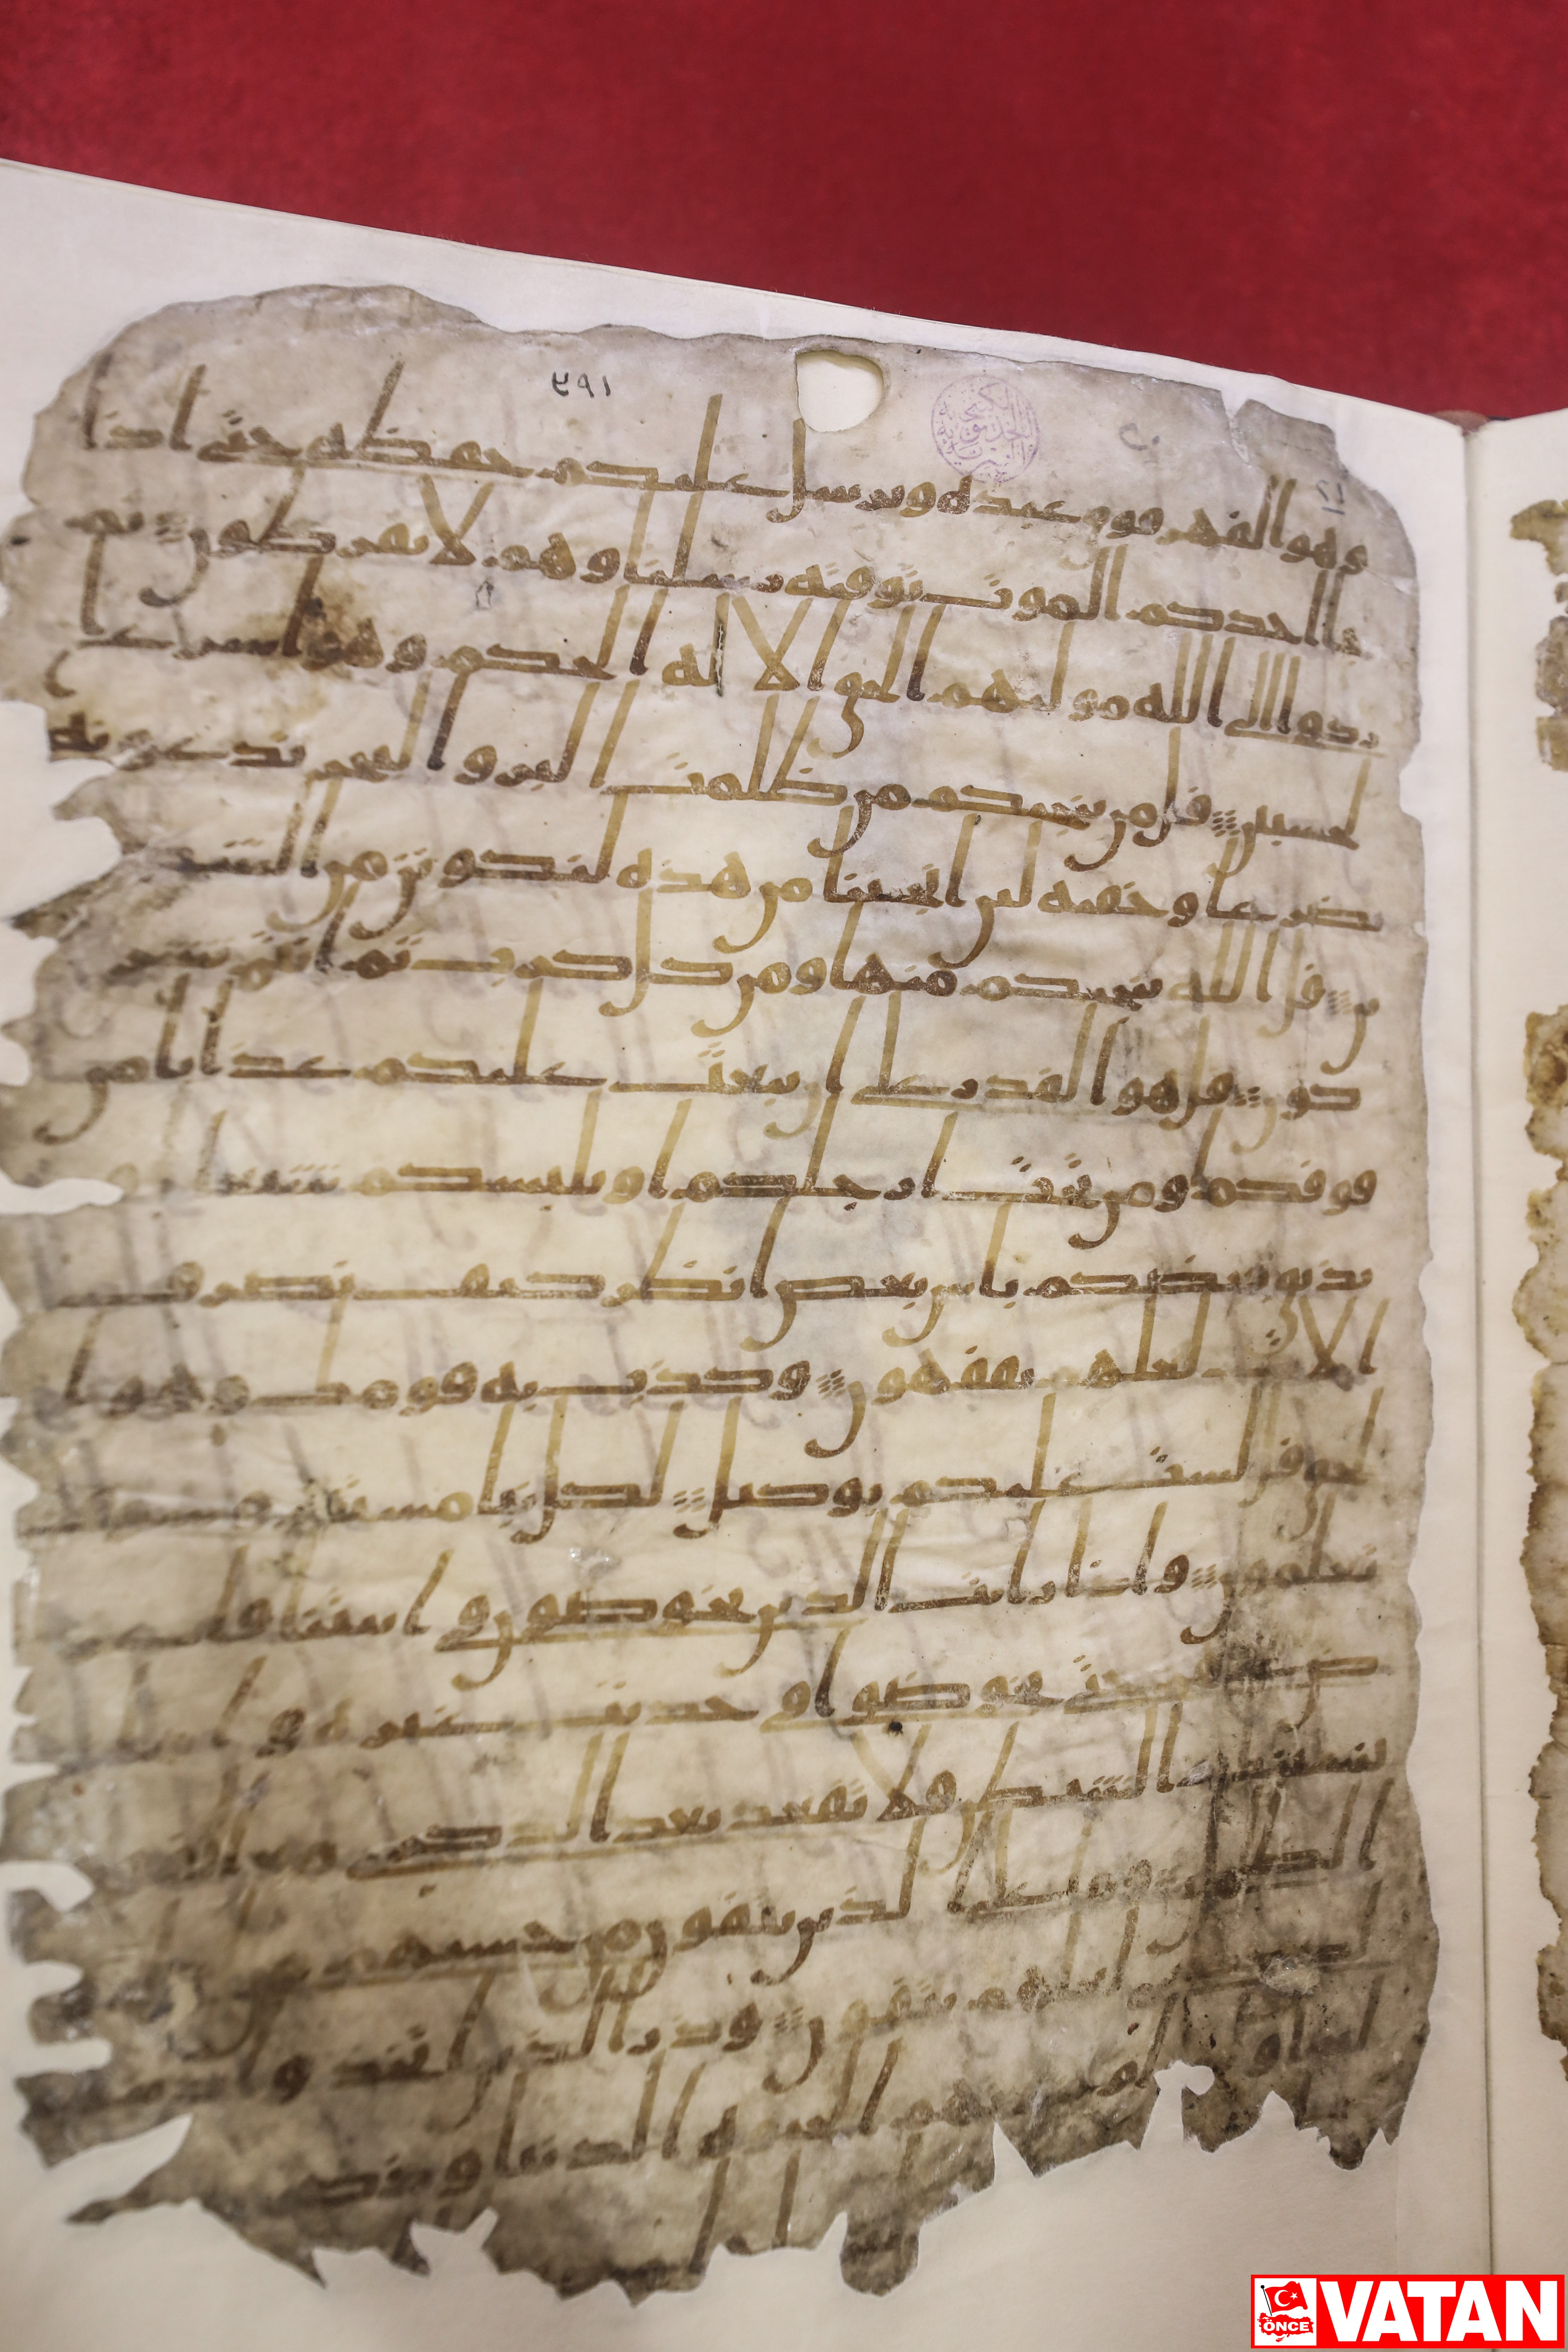 وهو القهر فوق عبده ويرسل عليكم حفظه حتى اذا
جا احدكم الموت توفته رسلنا وهم لا يفرطون ثم
ردوا الى الله موليهم الحق الا له الحكم وهو اسرع ا
لحسبين قل من ينجيكم من ظلمت البر والبحر تدعونه
تضرعا وخفيه لين انجينا من هذه لنكونن من الشكر
ين قل الله ينجيكم منها ومن كل كرب ثم انتم تشر
كون قل هو القدر على ان يبعث عليكم عذابا من
فوقكم او من تحت ارجلكم او يلبسكم شيعا و
يذيق بعضكم باس بعض انظر كيف نصرف
الايت لعلهم يفقهون وكذب به قومك وهو ا
لحق قل لست عليكم بوكيل لكل نبا مستقر وسوف
تعلمون واذا رايت الذين يخوضون في ايتنا فا
عنهم حتى يخوضوا في حديث غيره و
الشيطن فلا تقعد بعد الذكرى مع
الظلمين وما على الذين يتقون من حسبهم
لعلهم يتقون وذر الذين اتخذوا
الحيوه الدنيا وذكر
ÖNCE VATAN